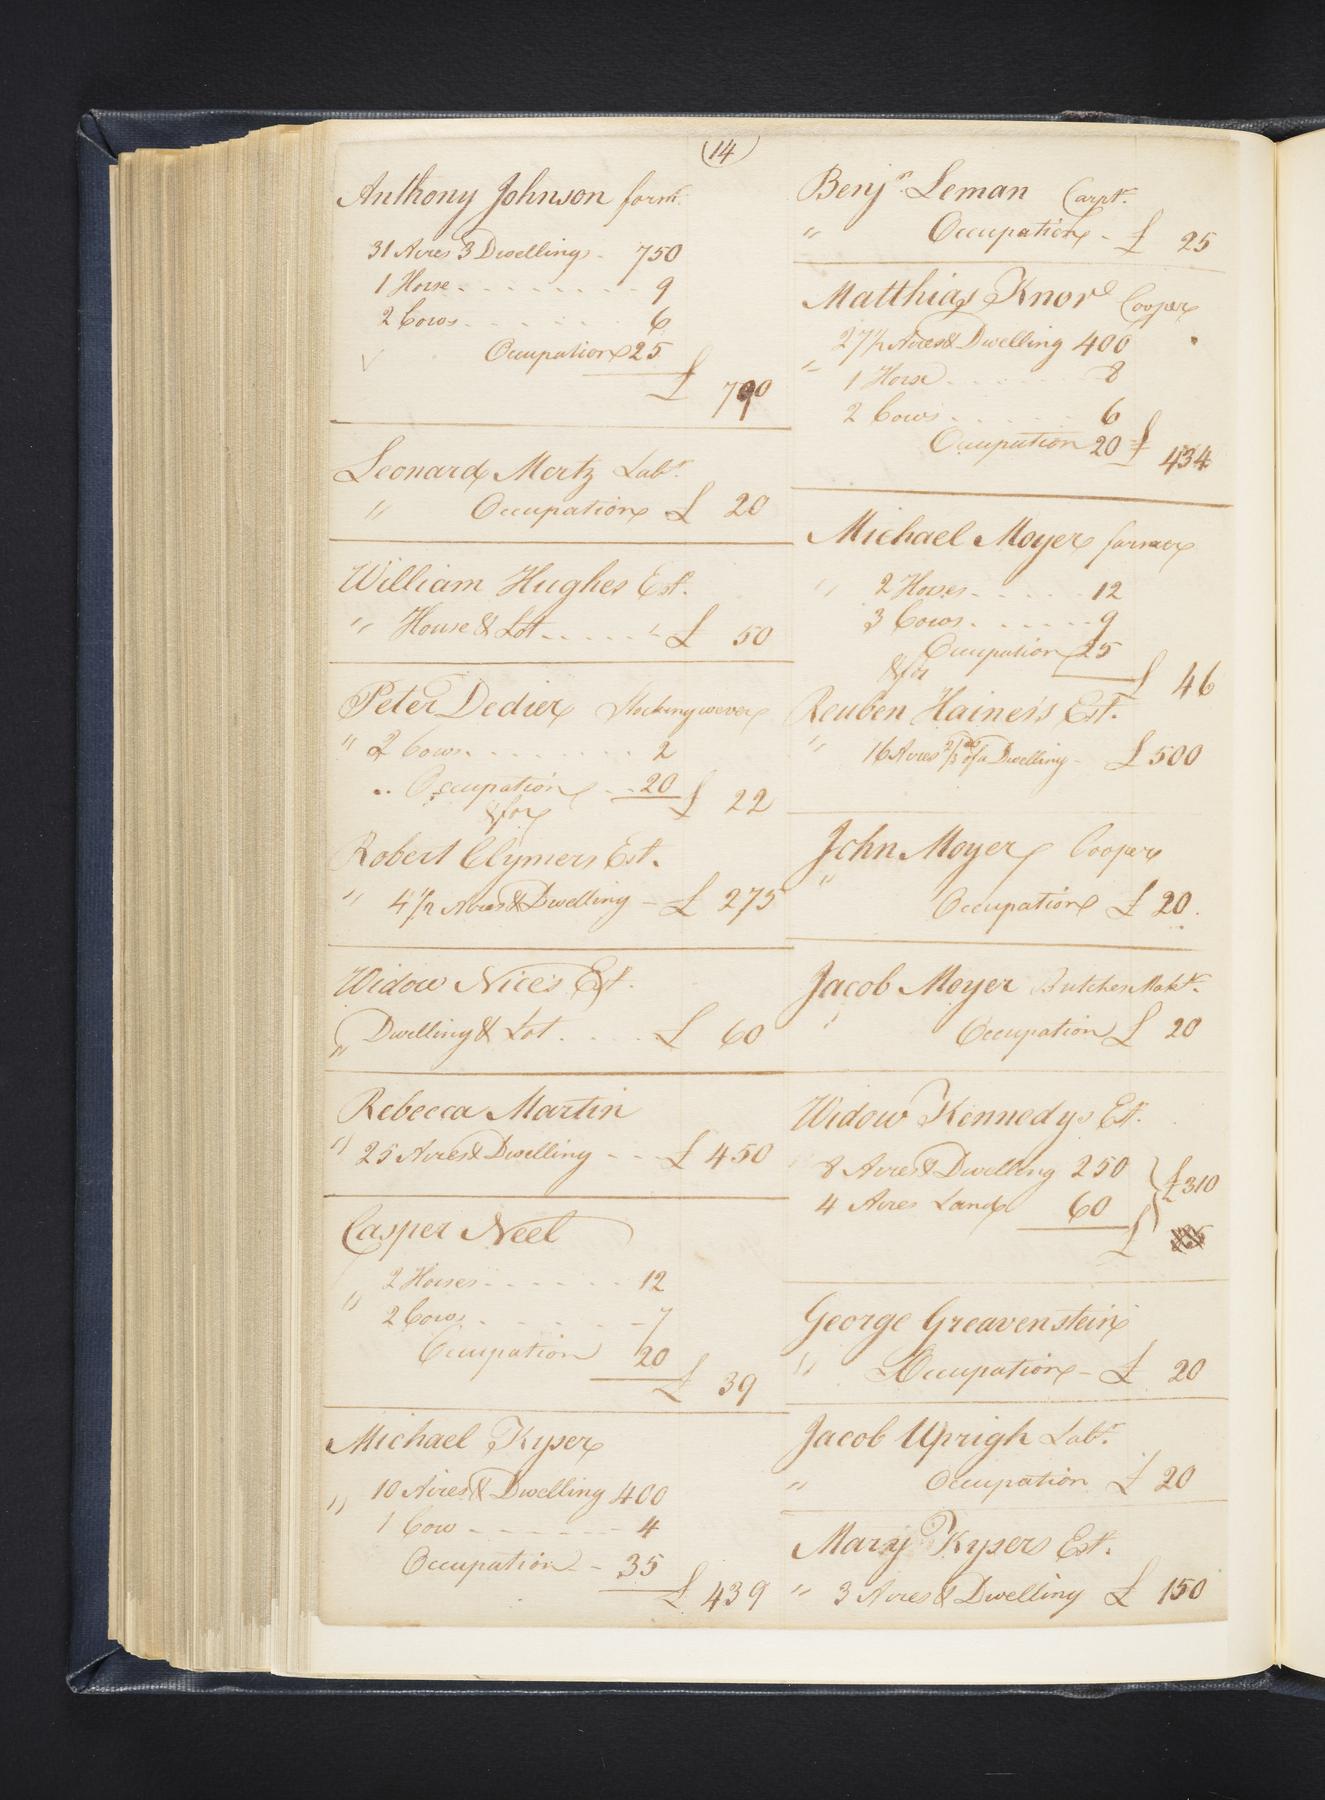 14
Anthony Johnson farmr.
31 Acres 3 Dwellings - 750
1 Horse - - - - - - - - 9
2 Cows - - - - - - - 6
Occupation 25
£ 790
Leonard Mertz Labr.
" Occupation £ 20
William Hughes Est.
" House & Lot - - - - - £ 50
Peter Dedier Stockingwever
" 2 Cows - - - - - - - 2
" Occupation - - 20 £ 22
& for
Robert Clymers Est.
" 4 1/2 Acres & Dwelling - £ 275
Widow Nices Est.
" Dwelling & Lot - - - - £ 60
Rebecca Martin
" 25 Acres & Dwelling - - - £ 450
Casper Neel
" 2 Horses - - - - - - 12
2 Cows - - - - - - 7
Occupation 20
£ 39
Michael Kyser
" 10 Acres & Dwelling 400
1 Cow - - - - - - - 4
Occupation - 35
£ 439
Benjn. Leman Carptr.
" Occupation - £ 25
Matthias Knorr Cooper
27 1/2 Acres & Dwelling 400
" 1 Horse - - - - - 8
2 Cows - - - - - 6
Occupation 20 £ 434
Michael Moyer farmer
" 2 Horses - - - - - 12
3 Cows - - - - - - 9
Occupation 25
& for £ 46
Reuben Haines's Est.
" 16 Acres 2/3 of a Dwelling - £ 500
John Moyer Cooper
"
Occupation £ 20
Jacob Moyer Butcher
" Occupation £ 20
Widow Kennedys Est.
8 Acres & Dwelling 250 £ 310
4 Acres Land 60
£
George Greavenstein
" Occupation - £ 20
Jacob Uprigh Labr.
" Occupation £ 20
Mary Kysers Est.
" 3 Acres & Dwelling £ 150